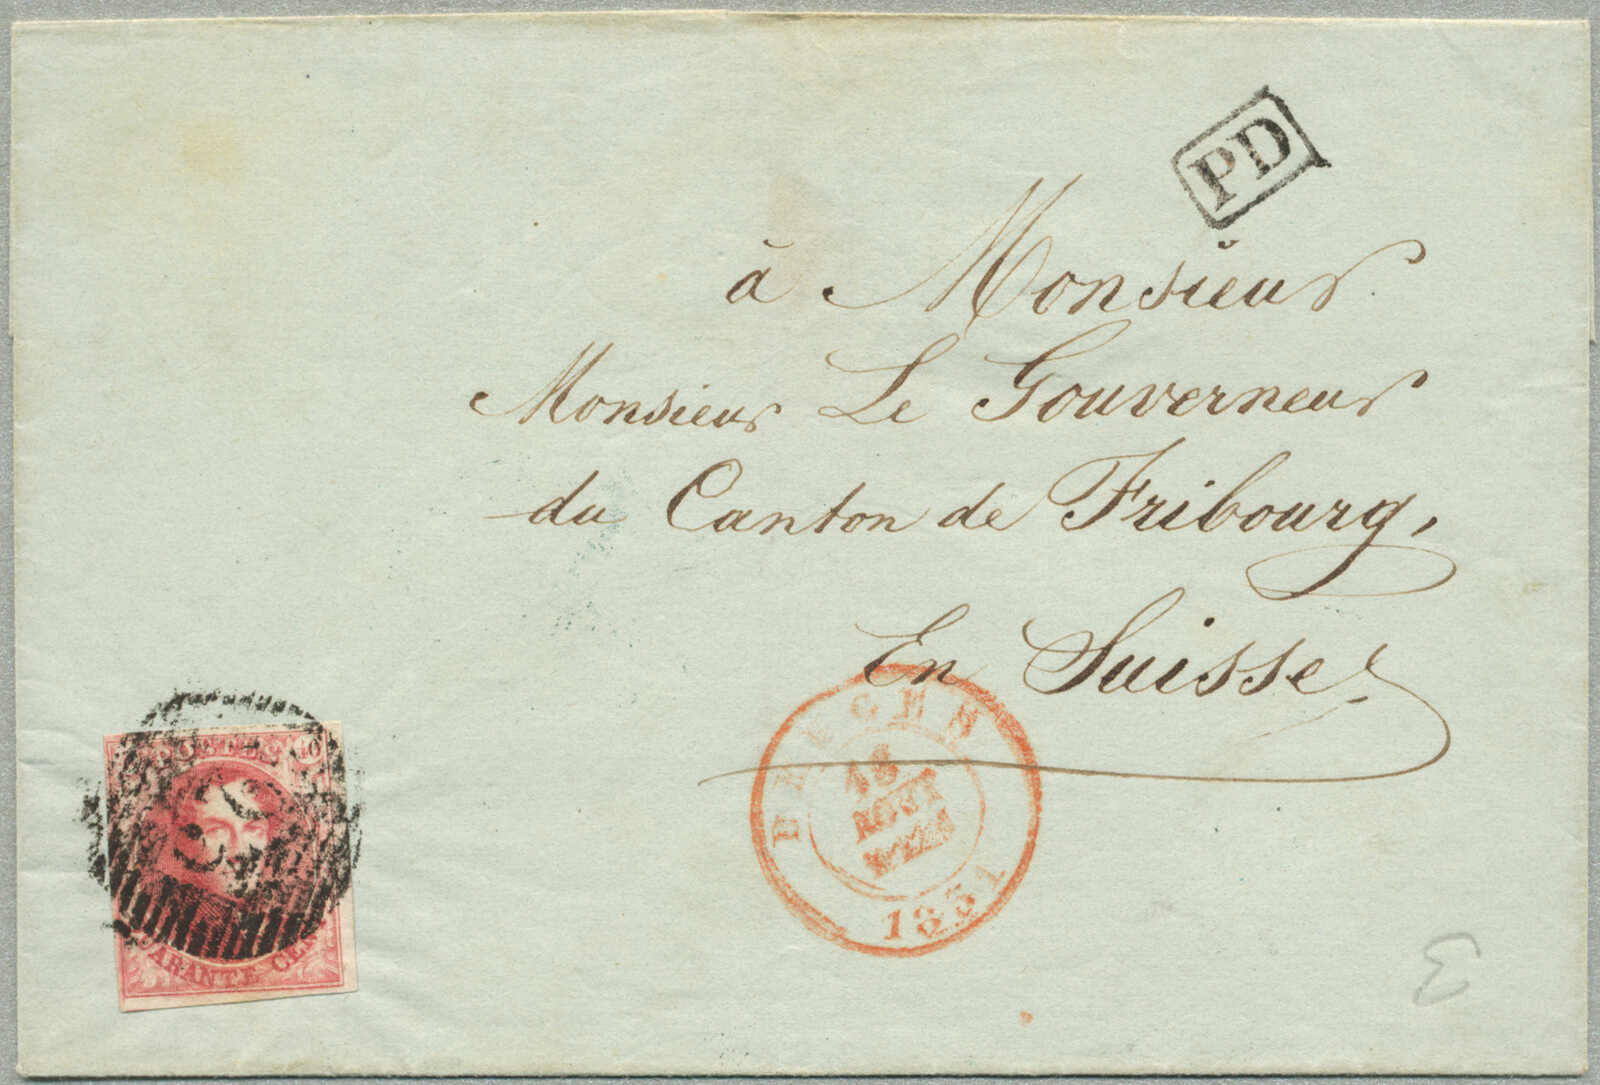 PD
à Monsieur
Monsieur Le Gouverneur
du Canton de Fribourg,
En Suisse
18
AOUT
1851
POSTES 40
QUARANTE CENT.